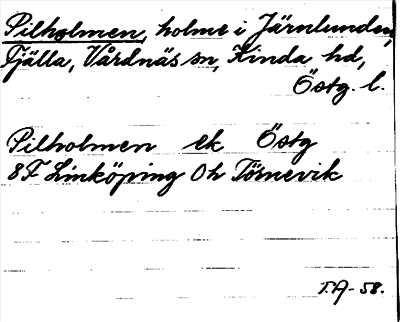 Pilholmen, holme i Järnlunden,
Fjälla, Vårdnäs sn, Kinda hd,
Östg. l.
Pilholmen ek Östg
8F Linköping Oh Törnevik
T.A-58.